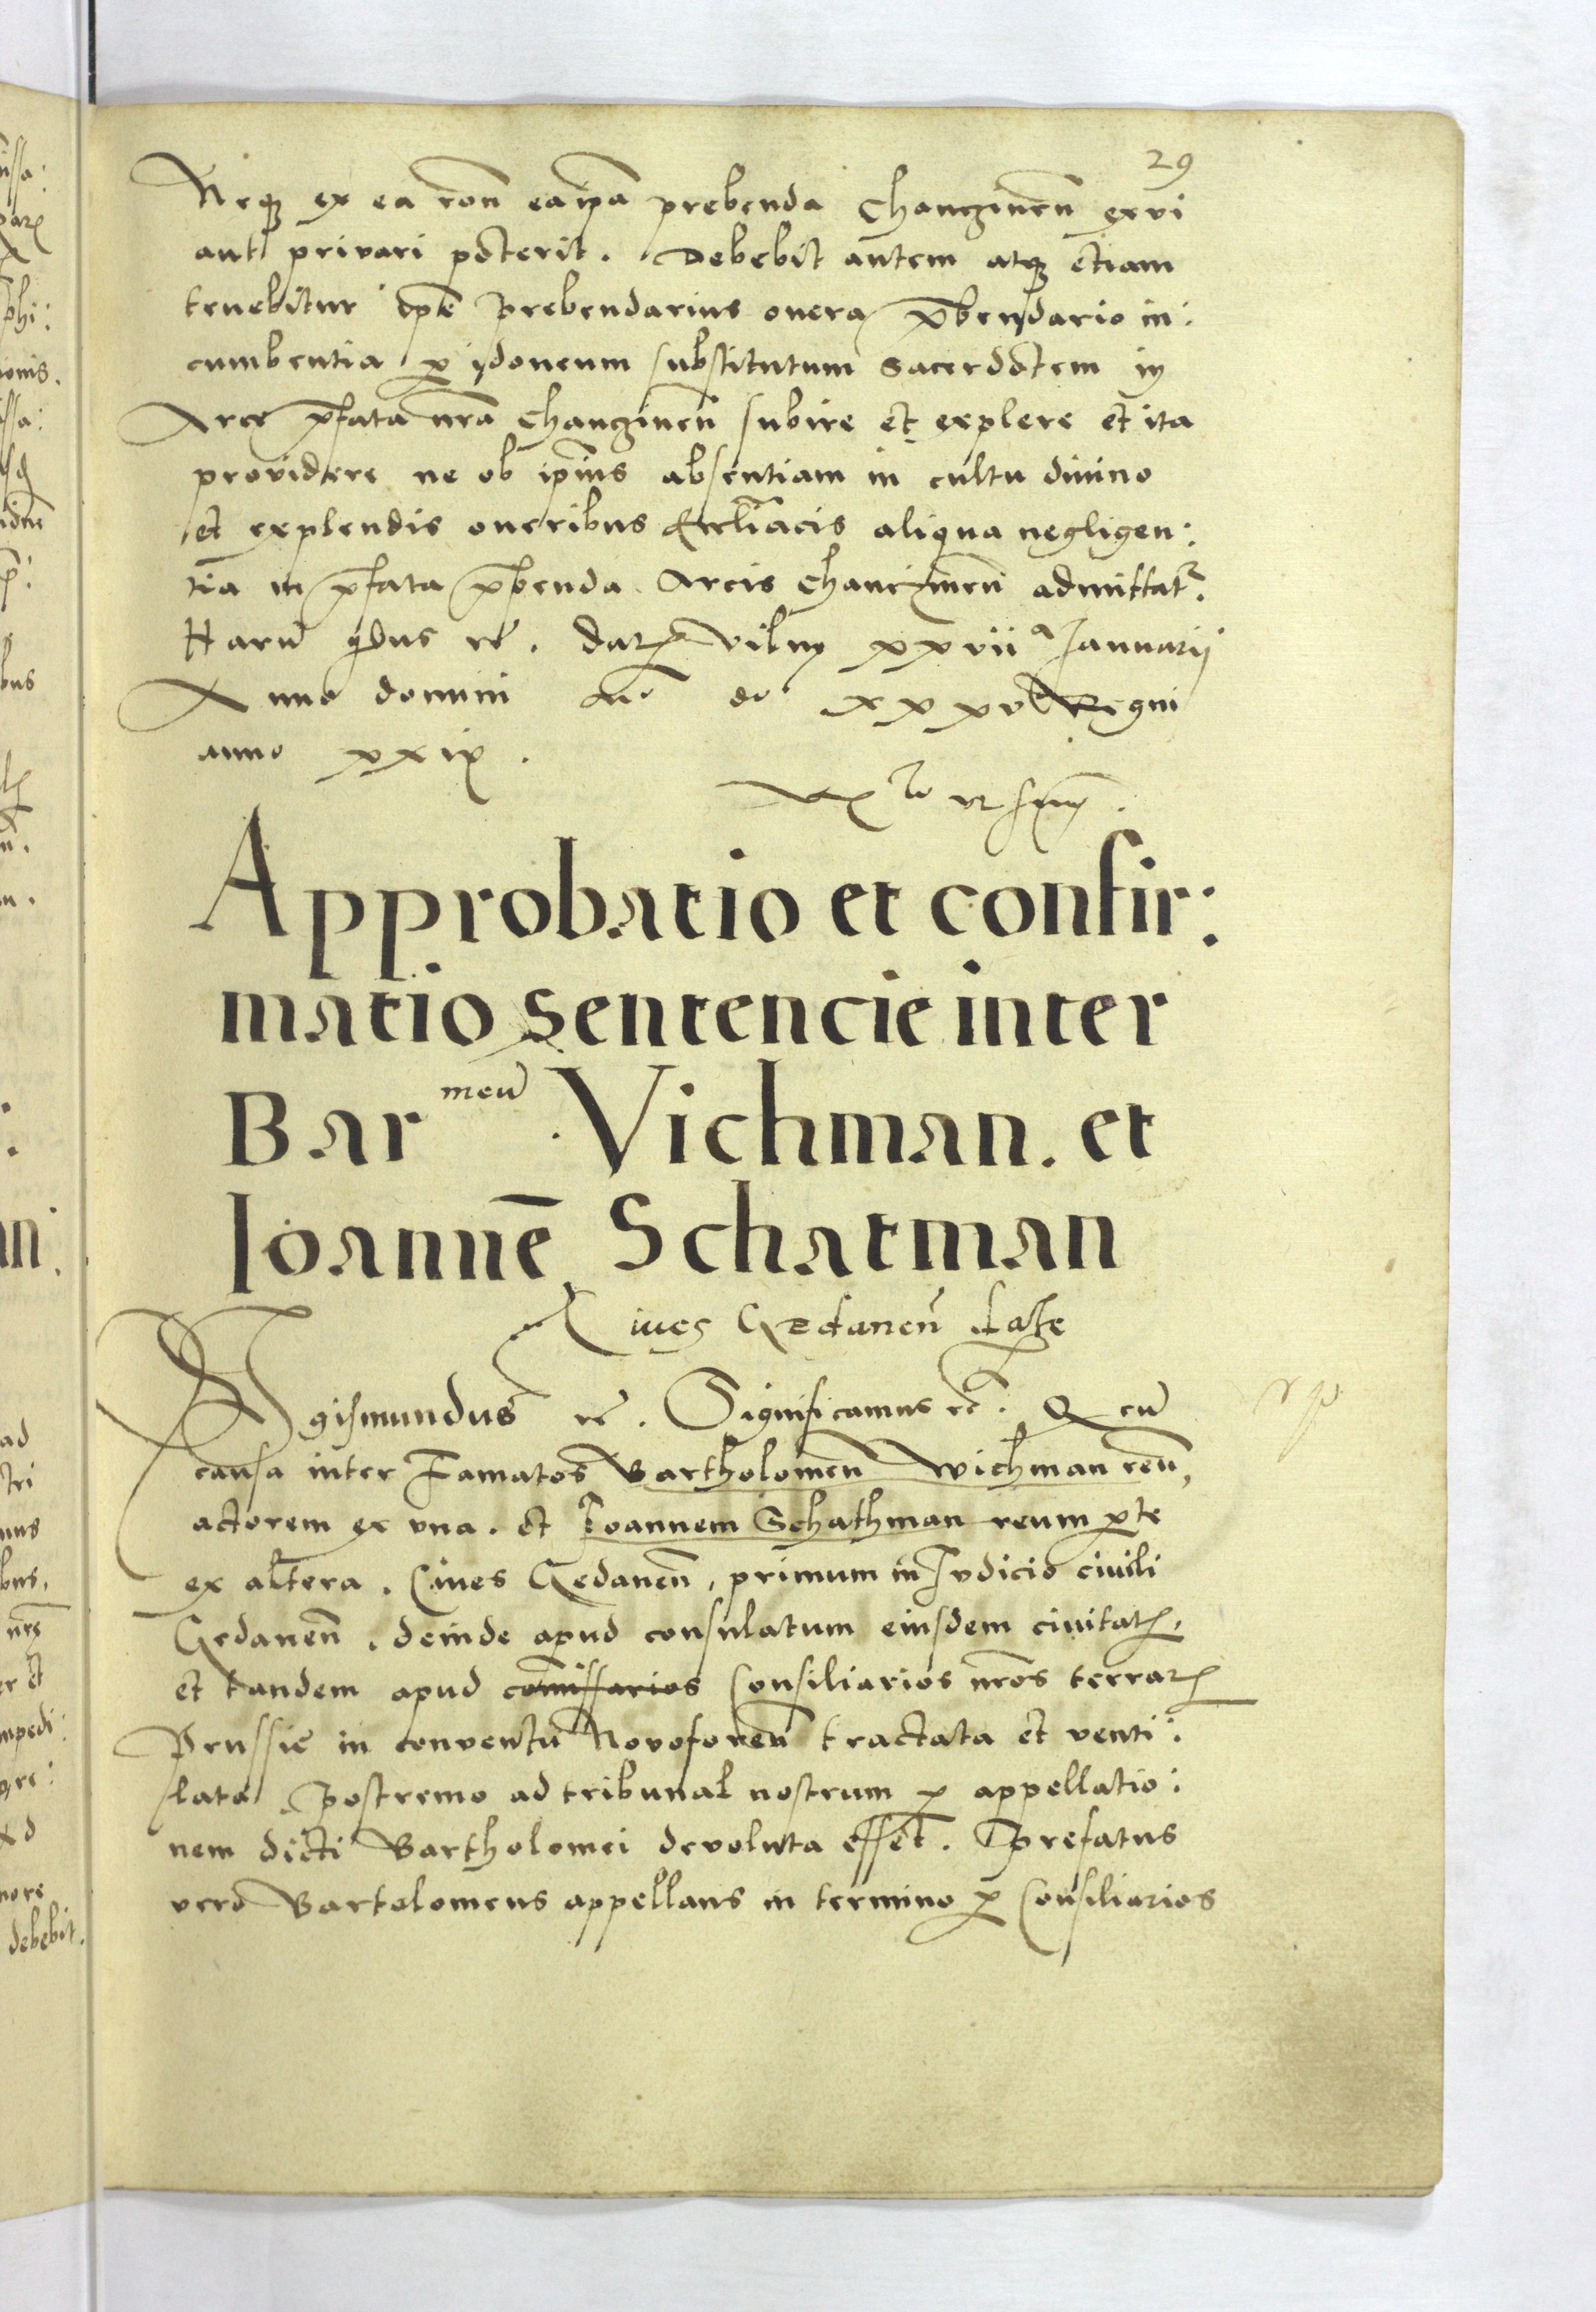 29
Neq₃ ex ea roñ ea ip̃a prebenda Chancinen̄ exvi
aut privari poterit. Debebit autem atq₃ etiam
tenebitur Prebendarius onera p̄bendario in:
cumbentia p̱ idoneum substitutum Sacerdotem in
Arce p̄fata nr̄a Chancinen̄ subire et explere et ita
providere ne ob ip̄ius absentiam in cultu divino
et explendis oneribus eccl̄iacis aliqua negligen:
tia in p̄fata p̄benda Arcis Chancinen̄ admittat͛.
Harū q̄bus rc̄. Dat Vilnę xxvii a Januarij
Anno domini xxxv Regni
anno xxix.
Approbatio et confir:
matio sentencie inter
Bar meū. Vichman. et
Joannē Schatman
Cives Gedanen̄ late
Sigismundus rc̄. Significamus rc̄. Q cū
causa inter Famatos Bartholomeū Wichman reū,
actorem ex una. et Ioannem Schathman reum p̱te
ex altera. Cives Gedanen̄, primum in Iudicio civili
Gedanen̄. deinde apud consulatum eiusdem civitatꝭ,
et tandem apud com̄issarios Consiliarios nr̄os terrarꝝ
Prussie in conventu Novoforen̄ tractata et venti:
lata Postremo ad tribunal nostrum p̱ appellatio:
nem dicti Bartholomei devoluta esset. Prefatus
vero Bartolomeus appellans in termino p̱ Consiliarios